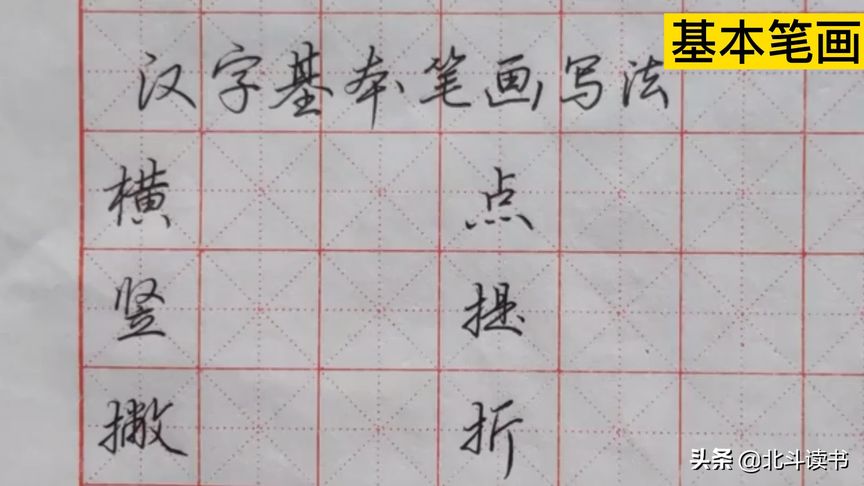 基本笔画
汉字基本笔画写法
横 点
竖 提
撇 折
头条 @北斗读书